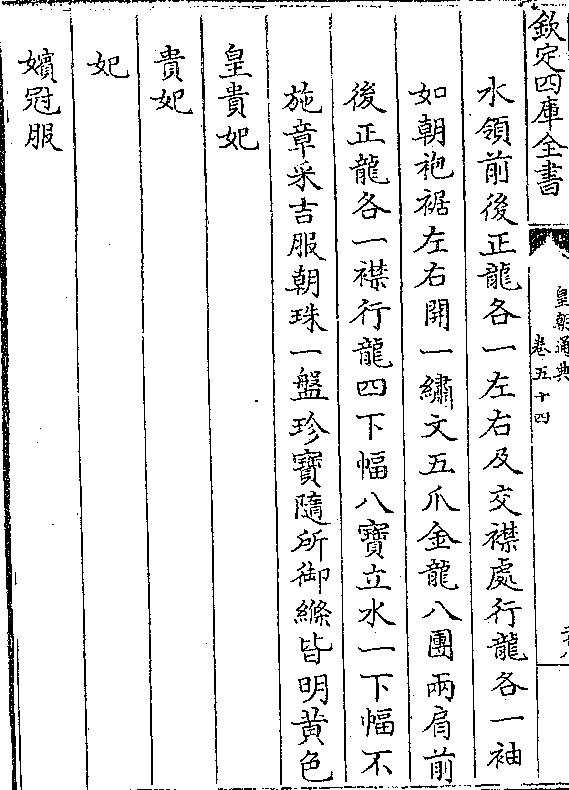 欽定四庫全書
皇朝通典
卷五十四
水領前後正龍各一左右及交襟處行龍各一袖
如朝袍裾左右開一繡文五爪金龍八團兩肩前
後正龍各一襟行龍四下幅八寶立水一下幅不
施章采吉服朝珠一盤珍寶隨所御絛皆明黃色
皇貴妃
貴妃
妃
嬪冠服